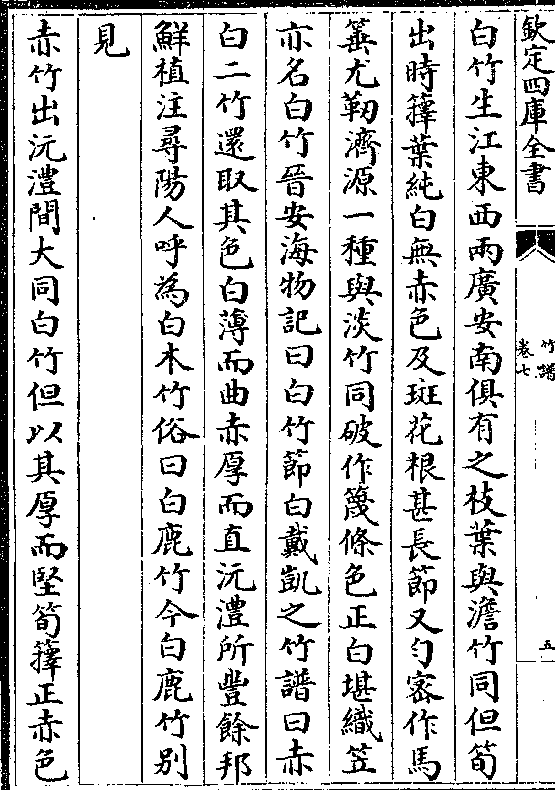 欽定四庫全書
竹譜
卷七
五
白竹生江東西兩廣安南俱有之枝葉與澹竹同但筍
出時籜葉純白無赤色及斑花根甚長節又勻宻作馬
箠尤韌濟源一種與淡竹同破作篾條色正白堪織笠
亦名白竹晉安海物記曰白竹節白戴凱之竹譜曰赤
白二竹還取其色白薄而曲赤厚而直沅澧所豐餘邦
鮮植注尋陽人呼為白木竹俗曰白鹿竹今白鹿竹别
見
赤竹出沅澧間大同白竹但以其厚而堅筍籜正赤色